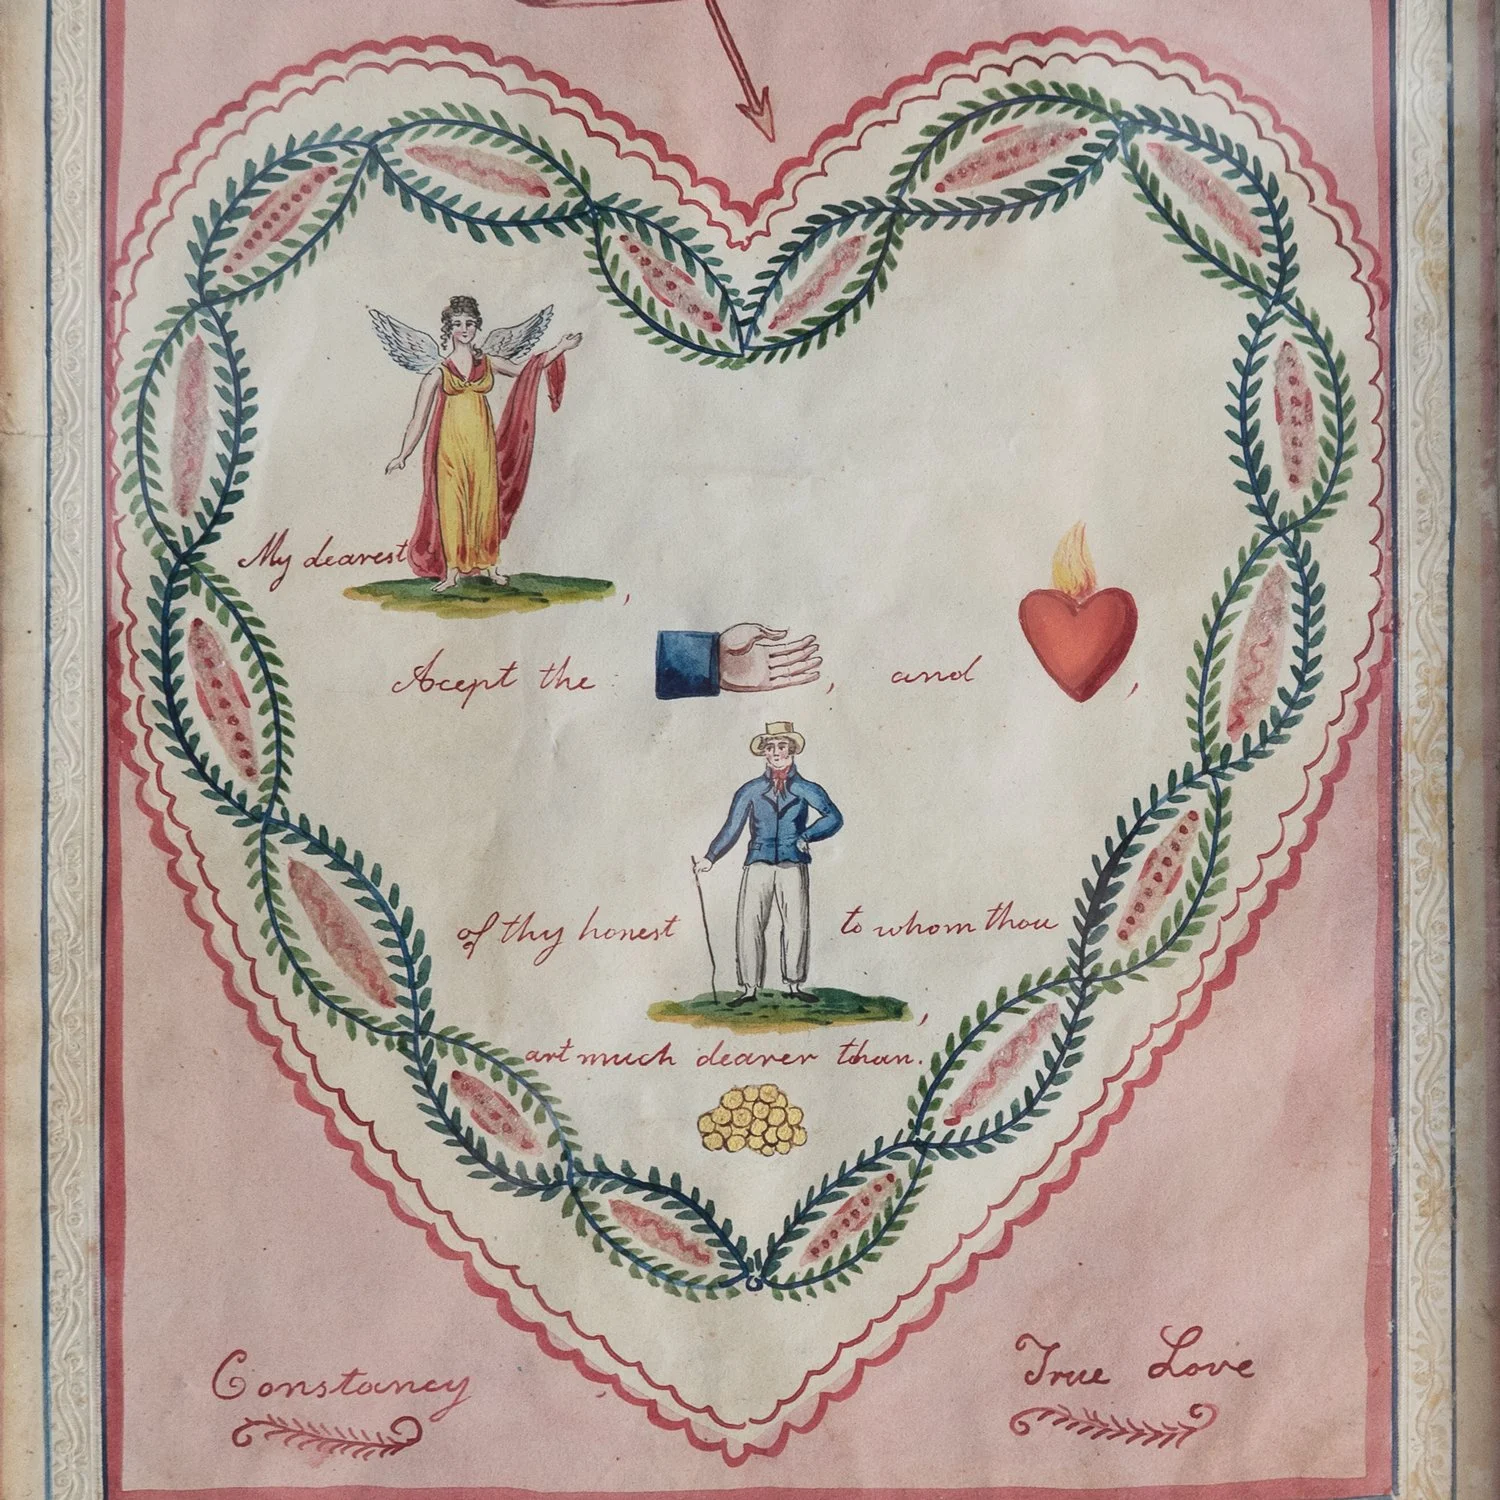 My dearest ,
Acept the , and ,
of thy honest to whom thou ,
art much dearer than.
Constancy
True Love